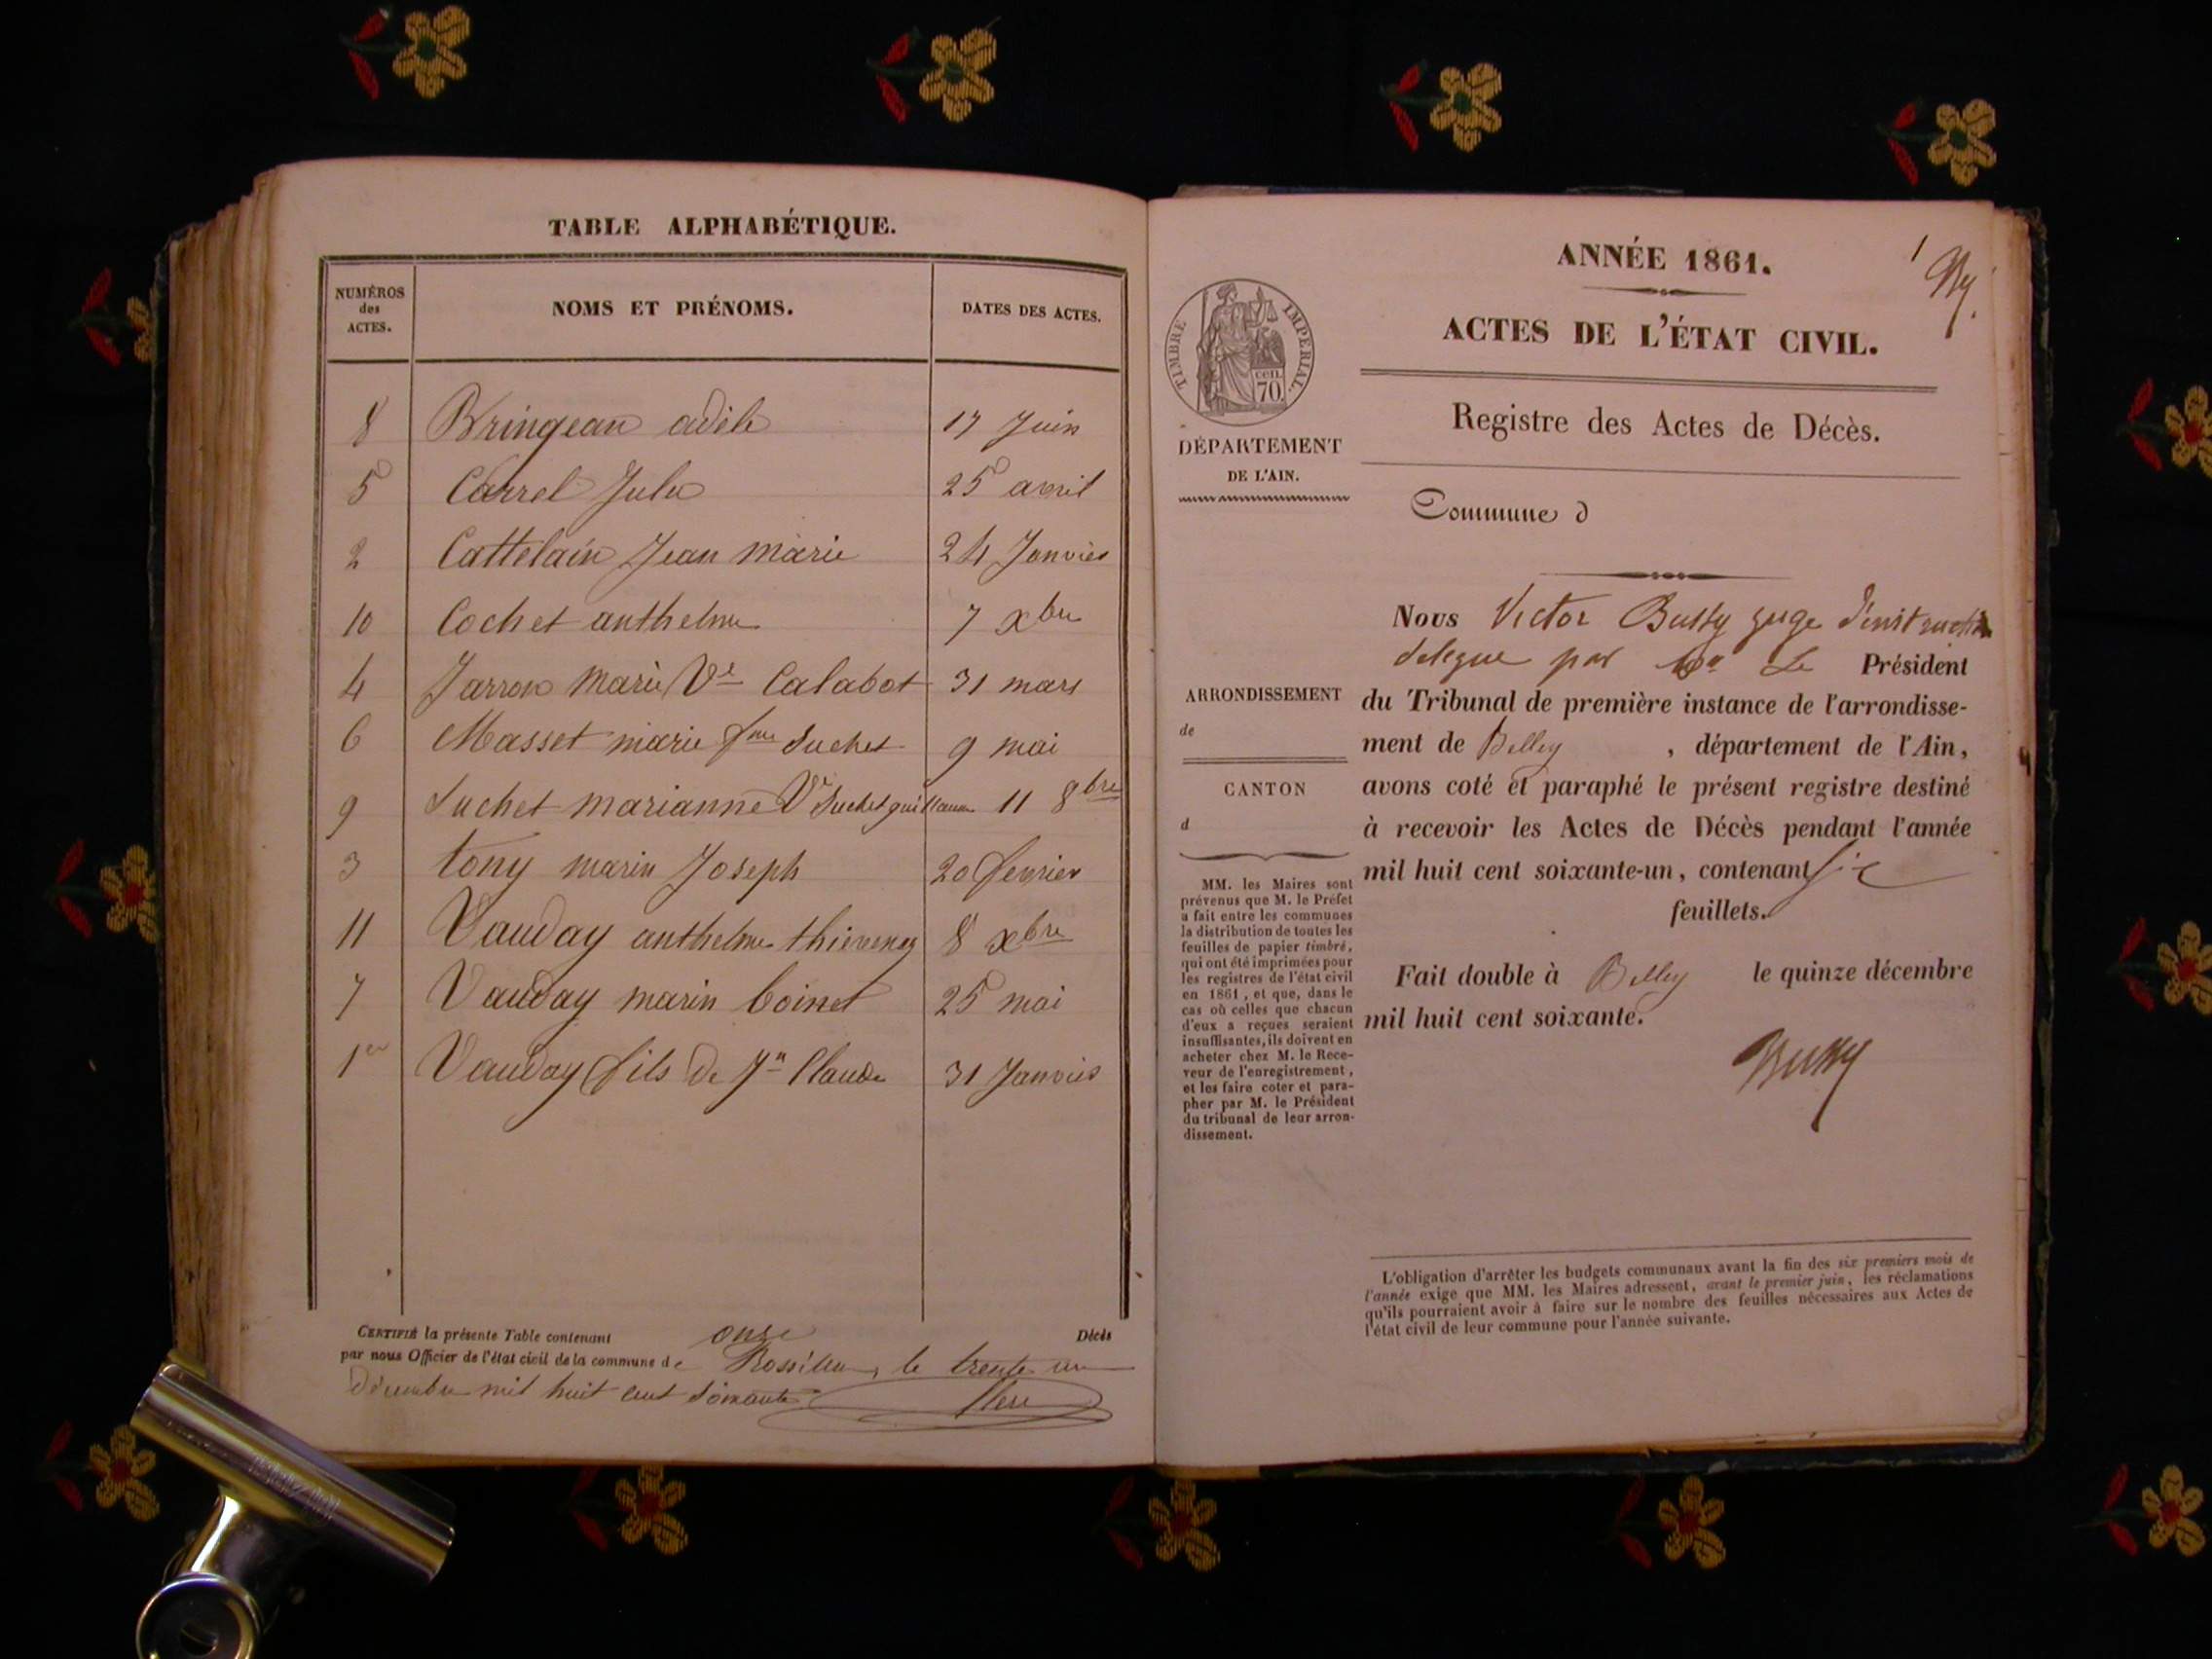 TABLE ALPHABÉTIQUE.
NUMÉROS
des
ACTES.
NOMS ET PRÉNOMS.
DATES DES ACTES.
8 Bringean adèle 17 Juin
5 Carrel Julie 25 avril
2 Cattelain Jean marie 24 Janvier
10 Cochet anthelme 7 xbre
4 Jarron marie Ve Calabot 31 mars
6 Masset marie fme Suchet 9 mai
9 Suchet marianne Ve Suchet guillaume 11 8bre
3 tony marin Joseph 20 fevrier
11 Vauday anthelme thievenaz 8 xbre
7 Vauday marin boinet 25 mai
1er Vauday fils de Jn Claude 31 Janvier
CERTIFIÉ la présente Table contenant onze Décès
par nous Officier de l'état civil de la commune de Rossillon, le trente un
Décembre mil huit cent soixante
1 By.
ANNÉE 1861.
ACTES DE L'ÉTAT CIVIL.
TIMBRE IMPERIAL.
cen.
70.
Registre des Actes de Décès.
DÉPARTEMENT
DE L'AIN.
Commune d
ARRONDISSEMENT
de
CANTON
d
MM. les Maires sont
prévenus que M. le Préfet
a fait entre les communes
la distribution de toutes les
feuilles de papier timbré,
qui ont été imprimées pour
les registres de l'état civil
en 1861, et que, dans le
cas où celles que chacun
d'eux a reçues seraient
insuffisantes, ils doivent en
acheter chez M. le Rece-
veur de l'enregistrement,
et les faire coter et para-
pher par M. le Président
du tribunal de leur arron-
dissement.
Nous Victor Bussy juge d'instruction
delegue par le Président
du Tribunal de première instance de l'arrondisse-
ment de Belley , département de l'Ain,
avons coté et paraphé le présent registre destiné
à recevoir les Actes de Décès pendant l'année
mil huit cent soixante-un, contenant six
feuillets.
Fait double à Belley le quinze décembre
mil huit cent soixante.
Bussy
L'obligation d'arrêter les budgets communaux avant la fin des six premiers mois de
l'année exige que MM. les Maires adressent, avant le premier juin, les réclamations
qu'ils pourraient avoir à faire sur le nombre des feuilles nécessaires aux Actes de
l'état civil de leur commune pour l'année suivante.